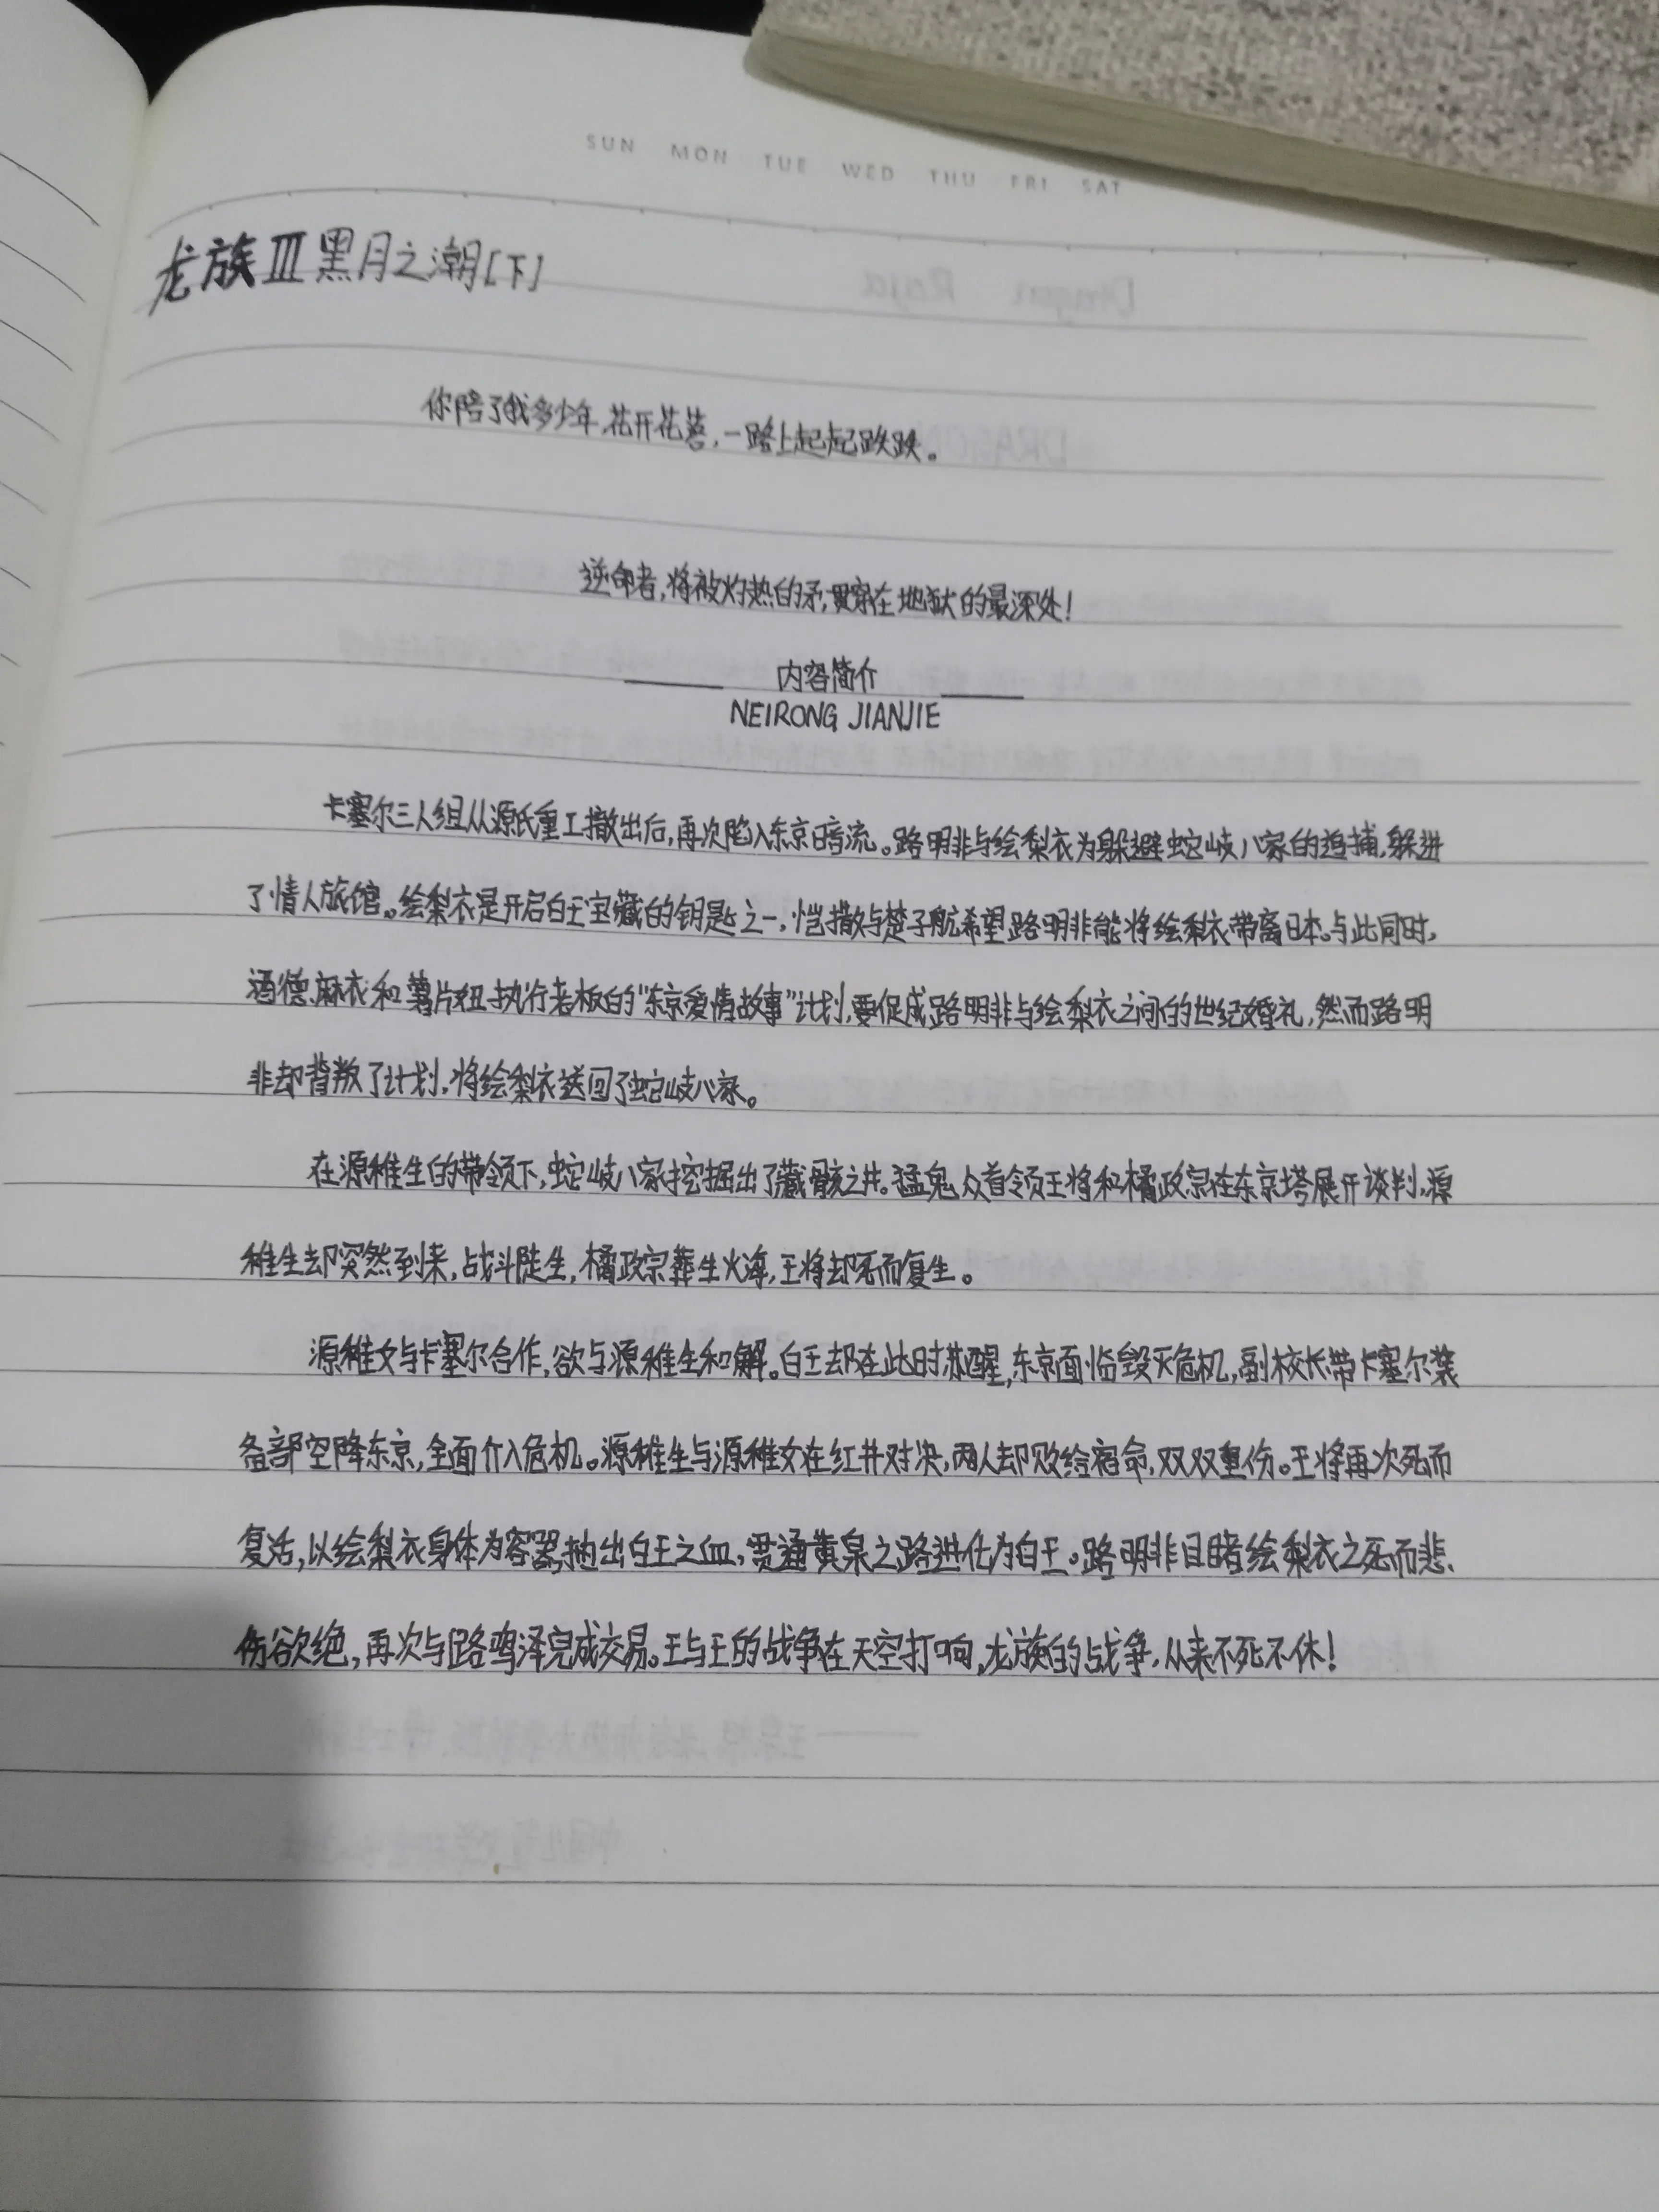 SUN MON TUE WED THU FRI SAT
龙族Ⅲ黑月之潮[下]
你陪了我多少年,花开花落,一路上起起跌跌。
逆命者,将被灼热的矛,贯穿在地狱的最深处!
内容简介
NEIRONG JIANJIE
卡塞尔三人组从源氏重工撤出后,再次陷入东京暗流。路明非与绘梨衣为躲避蛇岐八家的追捕,躲进
了情人旅馆。绘梨衣是开启白王宝藏的钥匙之一,恺撒与楚子航希望路明非能将绘梨衣带离日本。与此同时,
酒德麻衣和薯片妞执行老板的“东京爱情故事”计划,要促成路明非与绘梨衣之间的世纪婚礼,然而路明
非却背叛了计划,将绘梨衣送回了蛇岐八家。
在源稚生的带领下,蛇岐八家挖掘出了藏骸之井。猛鬼众首领王将和橘政宗在东京塔展开谈判,源
稚生却突然到来,战斗陡生,橘政宗葬生火海,王将却死而复生。
源稚女与卡塞尔合作,欲与源稚生和解。白王却在此时苏醒,东京面临毁灭危机,副校长带卡塞尔装
备部空降东京,全面介入危机。源稚生与源稚女在红井对决,两人却败给宿命,双双重伤。王将再次死而
复活,以绘梨衣身体为容器,抽出白王之血,贯通黄泉之路进化为白王。路明非目睹绘梨衣之死而悲
伤欲绝,再次与路鸣泽完成交易。王与王的战争在天空打响,龙族的战争,从来不死不休!